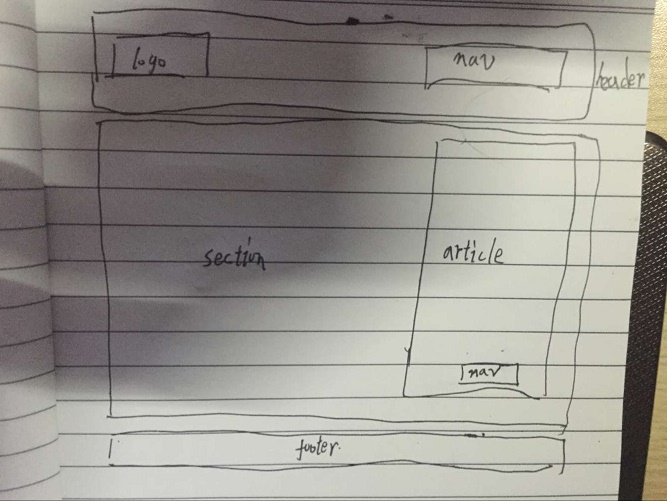 logo
nav
header
section
article
nav
footer.